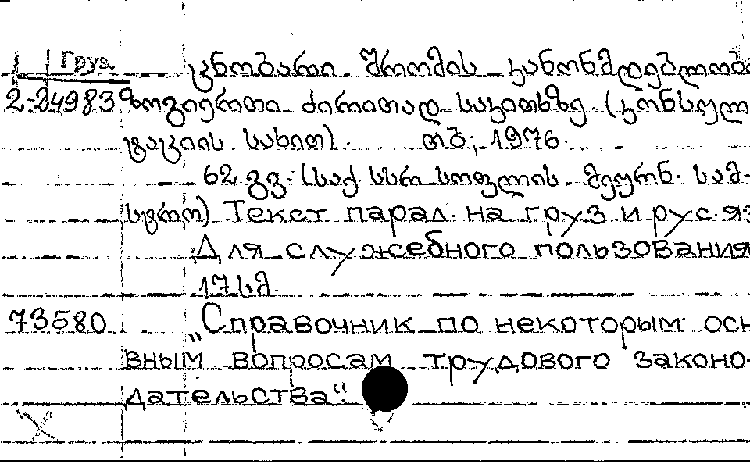 Груз.
ცნობარი შრომის კანონმდებლობ
2-24983 ზოგიერთი ძირითად საკითხზე (კონსულ
ტაციის სახით). თბ., 1976
62 გვ. (საქ. სსრ სოფლის მეურნ. სამ-
სტრო) Текст парал. на груз и рус яз
Для служебного пользования
17 სმ
73580 „Справочник по некоторым осн
вным вопросам трудового законо-
дательства“.